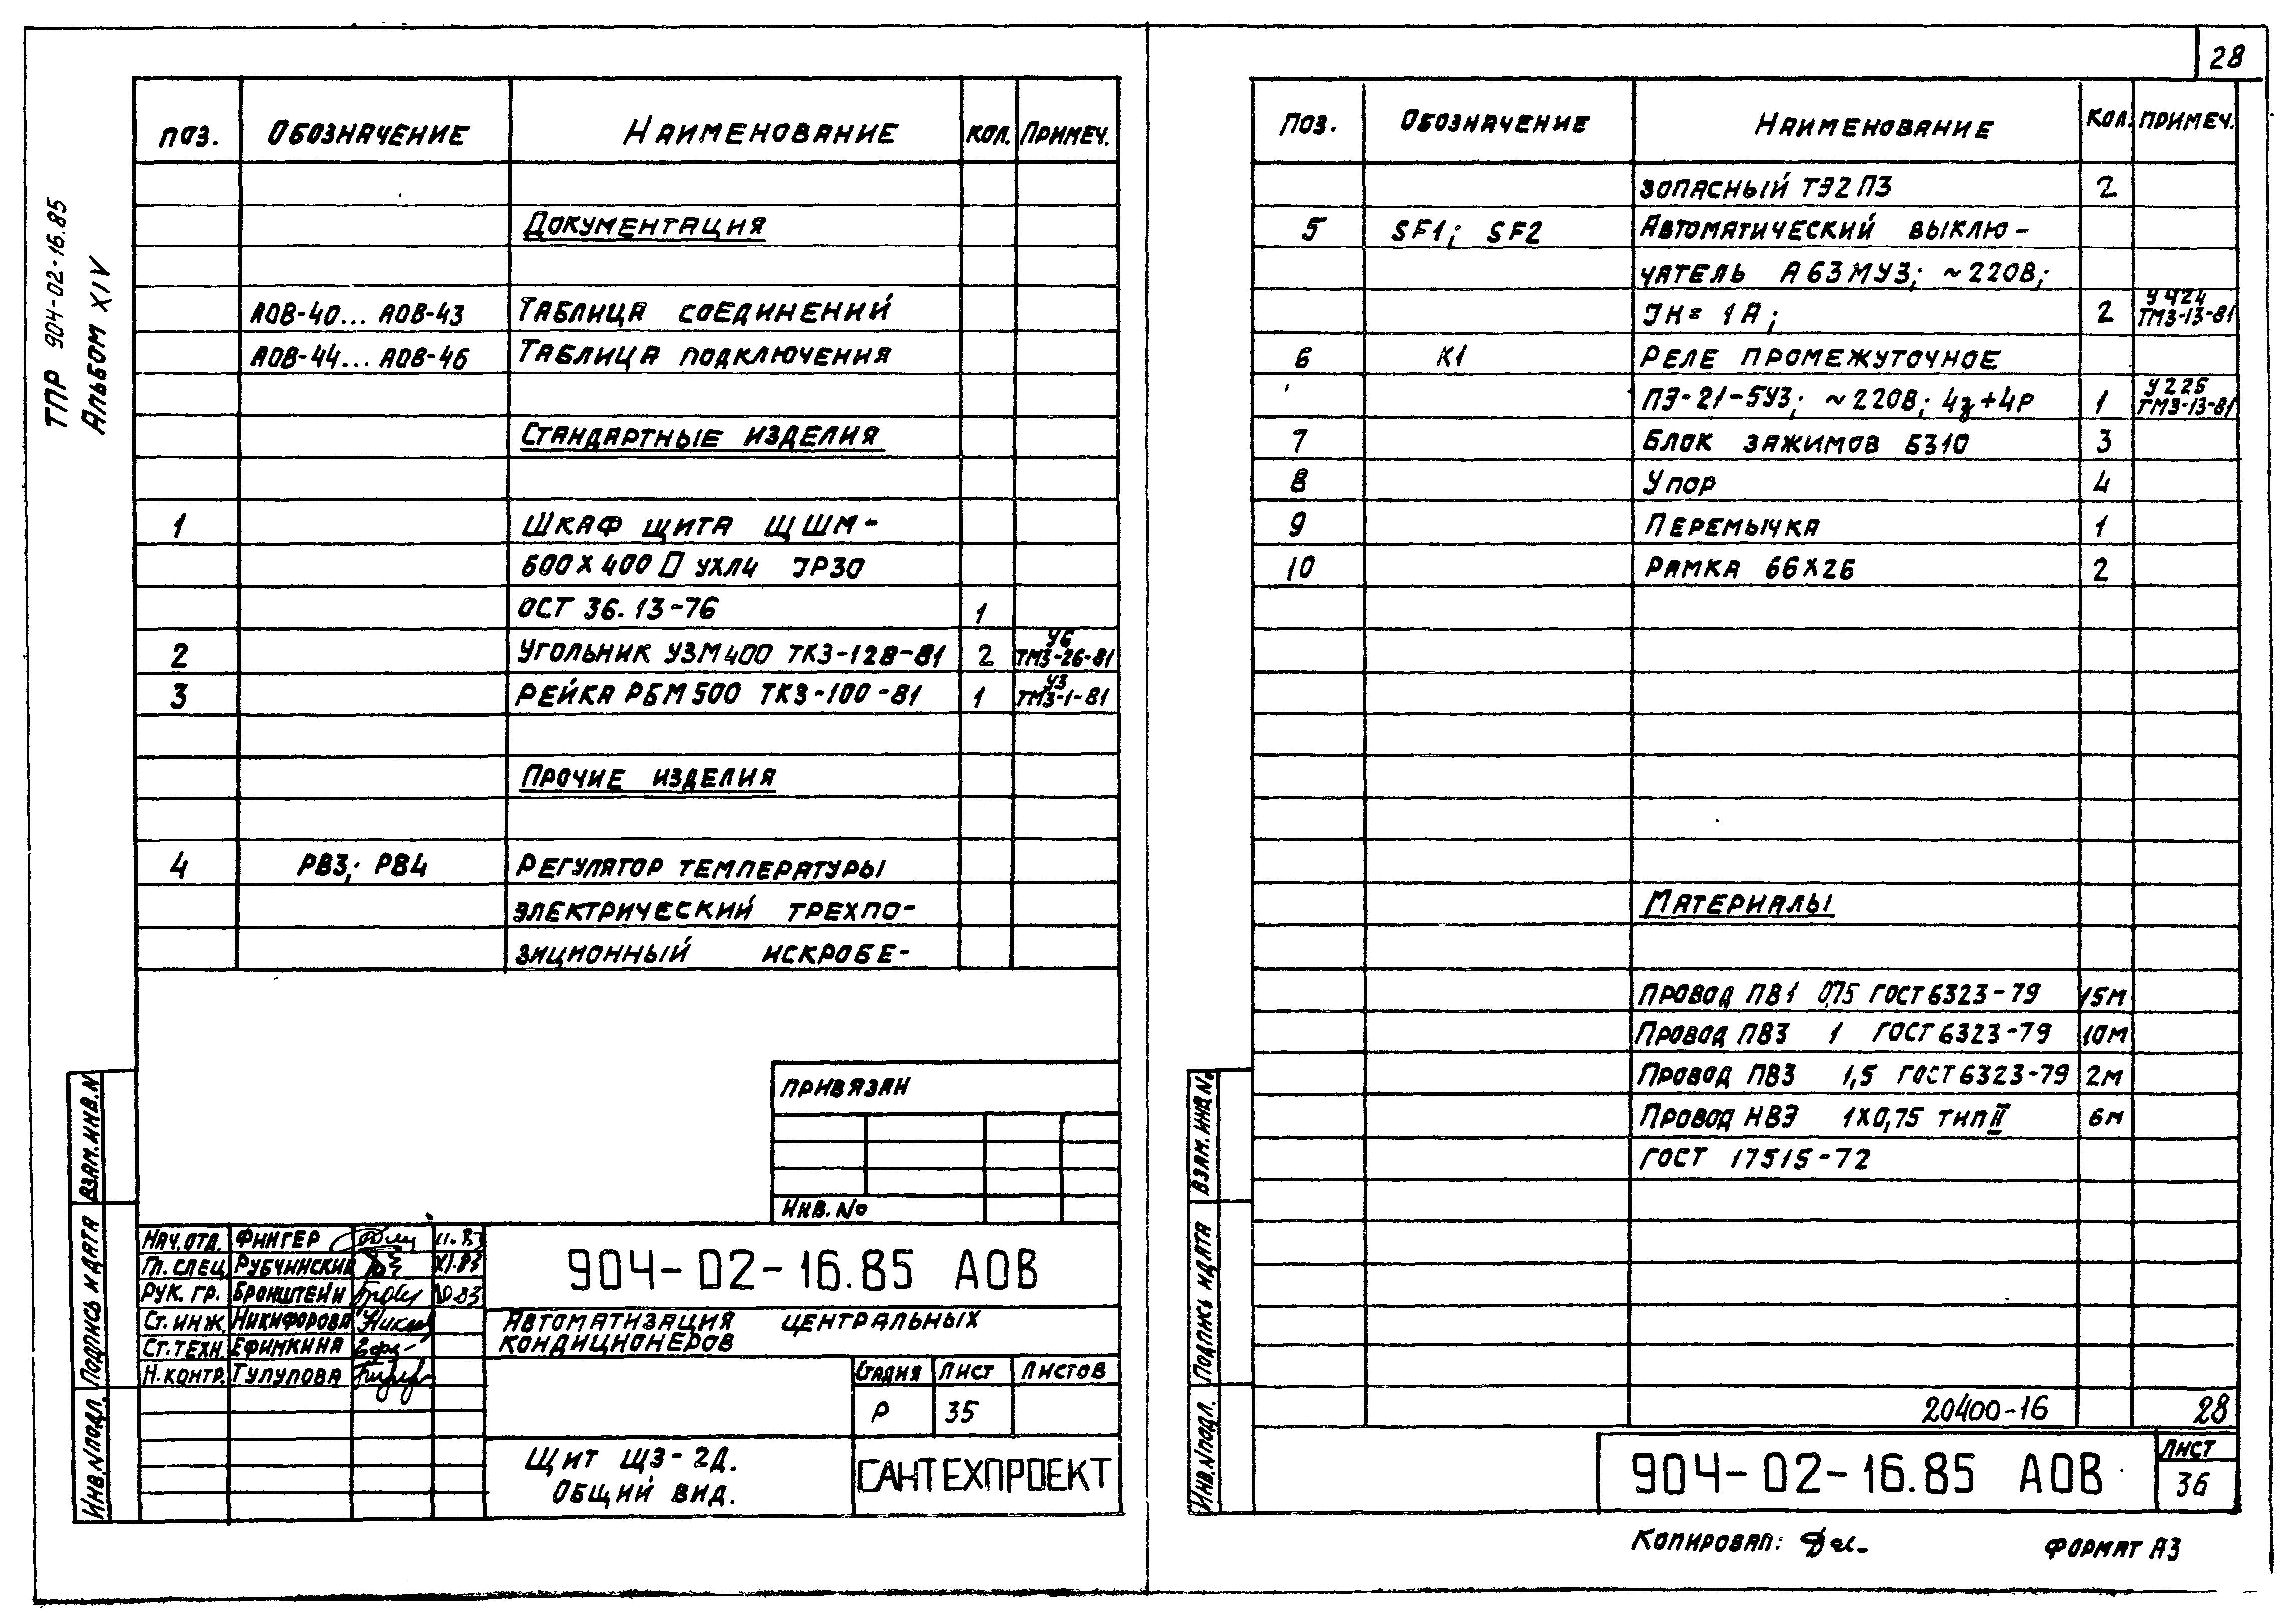 28
ТПР 904-02-16.85
Альбом XIV
Поз. Обозначение Наименование Кол. Примеч.
Документация
АОВ-40... АОВ-43 Таблица соединений
АОВ-44... АОВ-46 Таблица подключения
Стандартные изделия
1 Шкаф щита ЩШМ-
600х400 П УХЛ4 IP30
ОСТ 36.13-76 1
2 Угольник УЗМ400 ТКЗ-128-81 2 У6 ТМЗ-26-81
3 Рейка РБМ500 ТКЗ-100-81 1 У3 ТМЗ-1-81
Прочие изделия
4 РВ3; РВ4 Регулятор температуры
электрический трехпо-
зиционный искробе-
Привязан
Инв. №
Нач. отд. Фингер 11.83
Гл. спец. Рубчинский XI.83
Рук. гр. Бронштейн 10.83
Ст. инж. Никифорова
Ст. техн. Ефимкина
Н. контр. Тулупова
904-02-16.85 АОВ
Автоматизация центральных
кондиционеров
Стадия Лист Листов
Р 35
Щит ЩЗ-2Д.
Общий вид.
САНТЕХПРОЕКТ
Взам. инв. N
Подпись и дата
Инв. N подл.
Поз. Обозначение Наименование Кол. Примеч.
зопасный ТЭ2П3 2
5 SF1; SF2 Автоматический выклю-
чатель А63МУ3; ~220В;
Iн= 1А; 2 У424 ТМ3-13-81
6 К1 Реле промежуточное
ПЭ-21-5У3; ~220В; 4з+4р 1 У225 ТМ3-13-81
7 Блок зажимов БЗ10 3
8 Упор 4
9 Перемычка 1
10 Рамка 66х26 2
Материалы
Провод ПВ1 0,75 ГОСТ 6323-79 15м
Провод ПВ3 1 ГОСТ 6323-79 10м
Провод ПВ3 1,5 ГОСТ 6323-79 2м
Провод НВЭ 1х0,75 тип II 6м
ГОСТ 17515-72
20400-16 28
904-02-16.85 АОВ
Лист
36
Взам. инв. №
Подпись и дата
Инв. N подл.
Копировал:
Формат А3